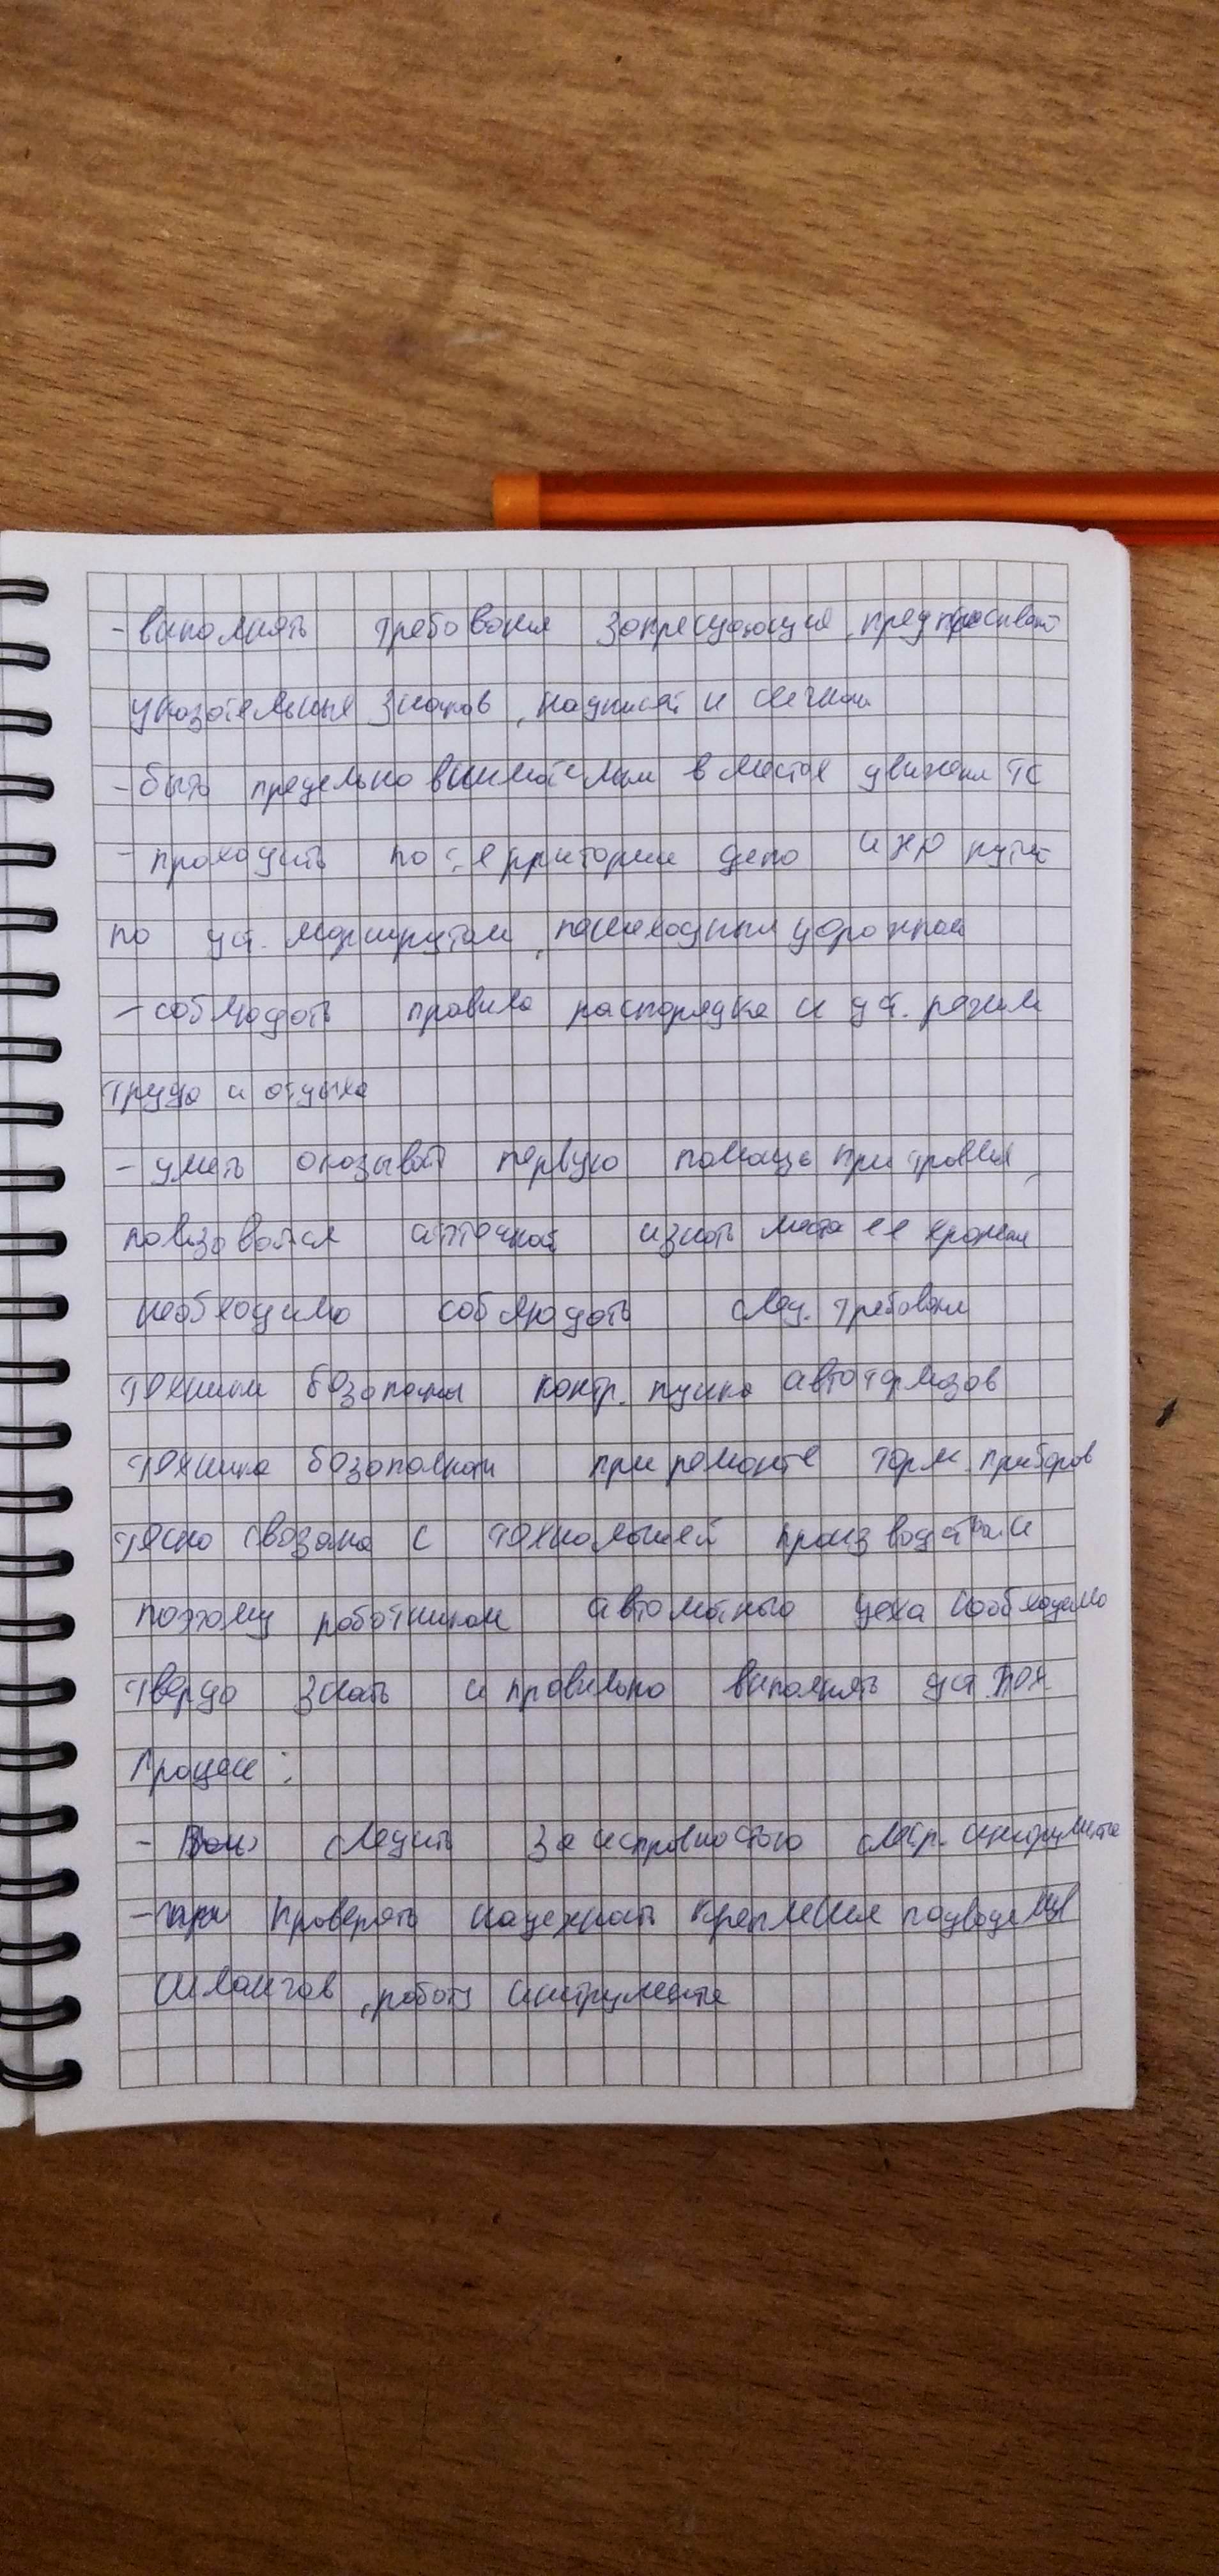 - выполнять требования запрещающие, пред
указательные знаков, надписей и сигнал
- быть предельно внимательным в местах движени ТС
- проходить по территории депо и ЖД путях
по уст. маршрутам, пешеходным дорожкам
- соблюдать правила распорядка и уст. режим
труда и отдыха
- уметь оказыват первую помощь при травмах,
ползоватся аптечкой и знать места ее хранен
необходимо соблюдать след. требовани
техники безопасны контр. пункта автотормозов
техника безопасности при ремонте торм. приборов
тесно свезана с технологией производства и
поэтому работникам автоматного цеха необходимо
твердо знать и правильно выполнять уст. тех
процесс:
- следить за исправностью слеср. инструмента
- проверять надежность крепления подводящ
шлангов, работу инструмента